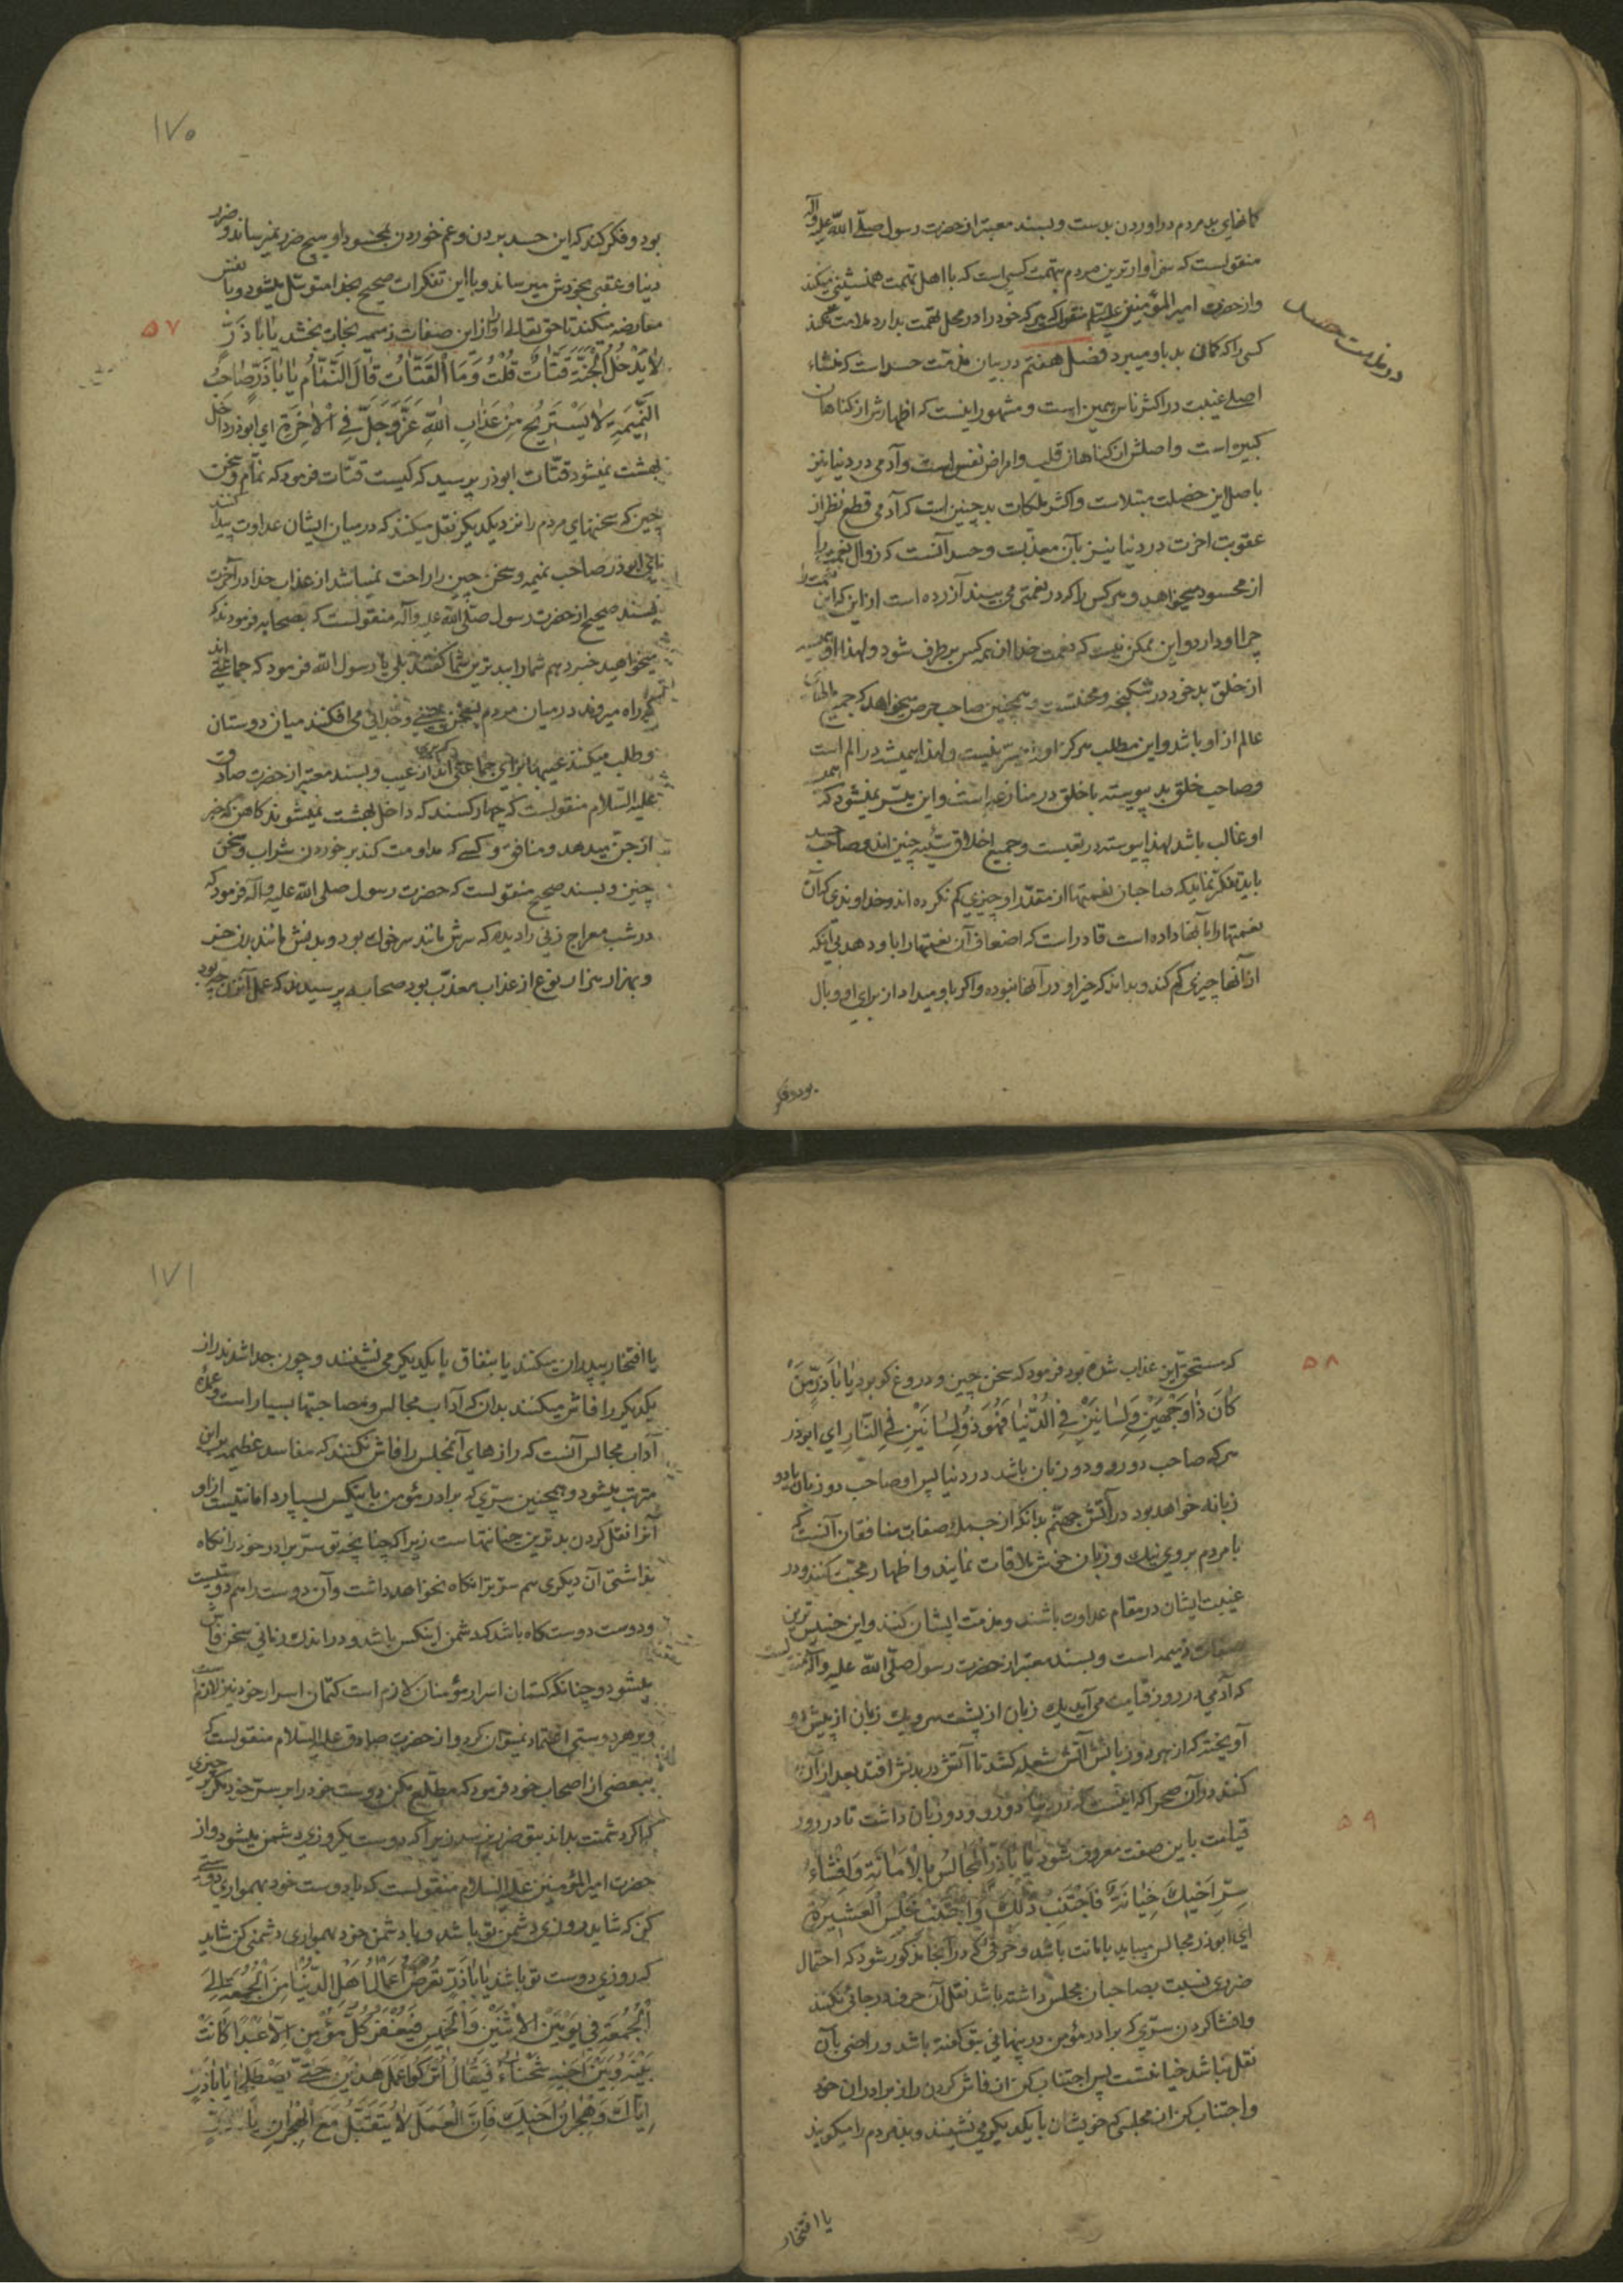 کمانهای بد مردم در اوردن بدست و بسند معتبر از حضرت رسول صلّی اللّه علیه وآله
منقولست که سزاوارترین مردم بتهمت کسی است که با اهل تهمت همنشینی میکند
واز حضرت امیر المؤمنین علیه السلم منقول که هر که خود را در محل تهمت بدارد ملامت نکند
کسی را که کمان بد باو میبرد فصل هفتم در بیان مذمّت حسد است که منشاء
اصلی غیبت در اکثر ناس همین است و مشهور اینست که اظهارش از کناهان
کبیره است واصلش از کناهان قلب و امراض نفس است و آدمی در دنیا نیز
باصل این خصلت مبتلاست و اکثر ملکات بد چنین است که آدمی قطع نظر از
عقوبت اخرت در دنیا نیز بآن معذبست و حسد آنست که زوال نعمت را
از محسود میخواهد و هر کس را که در نعمتی می بیند آزرده است از این که این نعمت را
چرا او دارد و این ممکن نیست که نعمت خدا از همه کس برطرف شود و لهذا او همیشه
از خلق بد خود در شکنجه و محنتست و همچنین صاحب حرص میخواهد که جمیع
عالم از او باشد و این مطلب هرکز او را میسّر نیست و لهذا همیشه در الم است
و صاحب خلق بد پیوسته با خلق در منازعه است و این میسّر نمیشود که همیشه
او غالب باشد لهذا پیوسته در تعبست و جمیع اخلاق سیّئه چنین اند و صاحب حسد
باید تفکر نماید که صاحبان نعمتها از مقدّر او چیزی کم نکرده اند و خداوندی که آن
نعمتها را بآنها داده است قادر است که اضعاف آن نعمتها را باو دهد بی آنکه
از آنها چیزی کم کند و بداند که خیر او در آنها نبوده و اکر باو میداد از برای او وبال
بود و فکر
در مذمت حسد
۱۷۰
بود و فکر کند که این حسد بردن و غم خوردن بمحسود او هیچ ضرر نمیرساند و ضرر
دنیا و عقبی بخودش میرساند و با این تفکرات صحیح بخدا متوسّل میشود و با نفس
معارضه میکند تا حق تعالی او را از این صفات ذمیمه نجات بخشد یٰا اَبٰاذَرٍّ
۵۷
لٰا یَدْخُلُ الْجَنَّةَ قَتّٰاتٌ قُلْتُ وَمَا الْقَتّٰاتُ قٰالَ النَّمّٰامُ یٰا اَبٰاذَرٍّ صٰاحِبُ
النَّمیمَةِ لٰا یَسْتَریحُ مِنْ عَذٰابِ اللّٰهِ عَزَّ وَجَلَّ فِی الْاٰخِرَةِ ای ابوذر داخل
بهشت نمیشود قتّات ابوذر پرسید که کیست قتّات فرمود که نمّام و سخن
چین که سخنهای مردم را نزد یکدیکر نقل میکنند که در میان ایشان عداوت پیدا کنند
یا ابوذر صاحب نمیمه و سخن چین را راحت نمیباشد از عذاب خدا در آخرت
بسند صحیح از حضرت رسول صلّی اللّه علیه وآله منقولست که بصحابه فرمودند که
میخواهید خبر دهم شما را ببدترین شما کفتند بلی یا رسول الله فرمود که جماعتی اند
که راه میروند در میان مردم بسخن چینی و جدائی می افکنند میان دوستان
و طلب میکنند عیبها برای جماعتی که بری اند از عیب و بسند معتبر از حضرت صادق
علیه السّلام منقولست که چهار کسند که داخل بهشت نمیشوند کاهن که خبر
از جن میدهد و منافق و کسی که مداومت کند بر خوردن شراب و سخن
چین و بسند صحیح منقولست که حضرت رسول صلی اللّه علیه وآله فرمود که
در شب معراج زنی را دیدم که سرش مانند سر خوک بود و بدنش مانند بدن خر
و بهزار هزار نوع از عذاب معذّب بود صحابه پرسیدند که عمل آن زن چه بود
که مستحقّ این عذاب شده بود فرمود که سخن چین و دروغ کو بود یٰا اَبٰاذَرٍّ مَنْ
۵۸
کٰانَ ذٰا وَجْهَیْنِ وَلِسٰانَیْنِ فِی الدُّنْیٰا فَهُوَ ذُو لِسٰانَیْنِ فِی النّٰارِ ای ابوذر
هر که صاحب دو رو و دو زبان باشد در دنیا پس او صاحب دو زبان یا دو
زبانه خواهد بود در آتش جهنّم بدانکه از جمله صفات منافقان آنست که
با مردم بروی نیک و زبان خوش ملاقات نمایند و اظهار محبّت کنند و در
غیبت ایشان در مقام عداوت باشند و مذمّت ایشان کنند و این خسیس ترین
صفات ذمیمه است و بسند معتبر از حضرت رسول صلّی اللّه علیه وآله منقولست
که آدمی در روز قیامت می آید یک زبان از پشت سر و یک زبان از پیش رو
آویخته که از هر دو زبانش آتش شعله کشد تا آتش در بدنش افتد بعد از آن
کنند در آن صحرا که اینست که در دنیا دو رو و دو زبان داشت تا در روز
قیامت باین صفت معروف شود یٰا اَبٰاذَرٍّ الْمَجٰالِسُ بِالْاَمٰانَةِ وَاِفْشٰاءُ
۵۹
سِرِّ اَخیکَ خِیٰانَةٌ فَاجْتَنِبْ ذٰلِکَ وَاجْتَنِبْ مَجْلِسَ الْعَشیرَةِ
ای ابوذر مجالس میباید بامانت باشد و حرفی که در آنجا مذکور شود که احتمال
ضرری نسبت بصاحبان مجلس داشته باشد نقل آن حرف در جائی نکنند
و افشا کردن سرّی که برادر مؤمن در پنهانی بتو کفته باشد و راضی بآن
نقل نباشد خیانتست پس اجتناب کن از فاش کردن راز برادران خود
و اجتناب کن از مجلسی که خویشان با یکدیکر می نشینند و بد مردم را میکویند
یا افتخار
۱۷۱
یا افتخار بپدران میکنند یا بنفاق با یکدیکر می نشینند و چون جدا شدند راز
یکدیکر را فاش میکنند بدان که آداب مجالس و مصاحبتها بسیار است و عمده
آداب مجالس آنست که رازهای آنمجلس را فاش نکنند که مفاسد عظیمه بر این
مترتب میشود و همچنین سرّی که برادر مؤمن باینکس بسپارد امانتیست از او
آنرا نقل کردن بدترین خیانتهاست زیرا که چنانچه تو سرّ برادر خود را نکاه
نداشتی آن دیکری هم سرّ ترا نکاه نخواهد داشت و آن دوست را هم دوستیست
و دوست دوست کاه باشد که دشمن اینکس باشد و در اندک زمانی سخن فاش
میشود و چنانکه کتمان اسرار مؤمنان لازم است کتمان اسرار خود نیز لازم است
و بر هر دوستی اعتماد نمیتوان کرد و از حضرت صادق علیه السّلام منقولست که
ببعضی از اصحاب خود فرمود که مطّلع مکن دوست خود را بر سرّ خود مکر بر چیزی
که اکر دشمنت بداند بتو ضرر نرسد زیرا که دوست یکروزی دشمن میشود و از
حضرت امیر المؤمنین علیه السلام منقولست که با دوست خود بهمواری دوستی
کن که شاید روزی دشمن تو باشد و با دشمن خود بهمواری دشمنی کن شاید
که روزی دوست تو باشد یٰا اَبٰاذَرٍّ تُعْرَضُ اَعْمٰالُ اَهْلِ الدُّنْیٰا مِنَ الْجُمُعَةِ اِلَی
الْجُمُعَةِ فِی یَوْمَیْنِ الْاِثْنَیْنِ وَالْخَمیسِ فَیُغْفَرُ لِکُلِّ مُؤْمِنٍ اِلّٰا عَبْدًا کٰانَتْ
بَیْنَهُ وَبَیْنَ اَخیهِ شَحْنٰاءُ فَیُقٰالُ اتْرُکُوا عَمَلَ هٰذَیْنِ حَتّٰی یَصْطَلِحٰا یٰا اَبٰاذَرٍّ
اِیّٰاکَ وَهِجْرٰانَ اَخیکَ فَاِنَّ الْعَمَلَ لٰا یُتَقَبَّلُ مَعَ الْهِجْرٰانِ